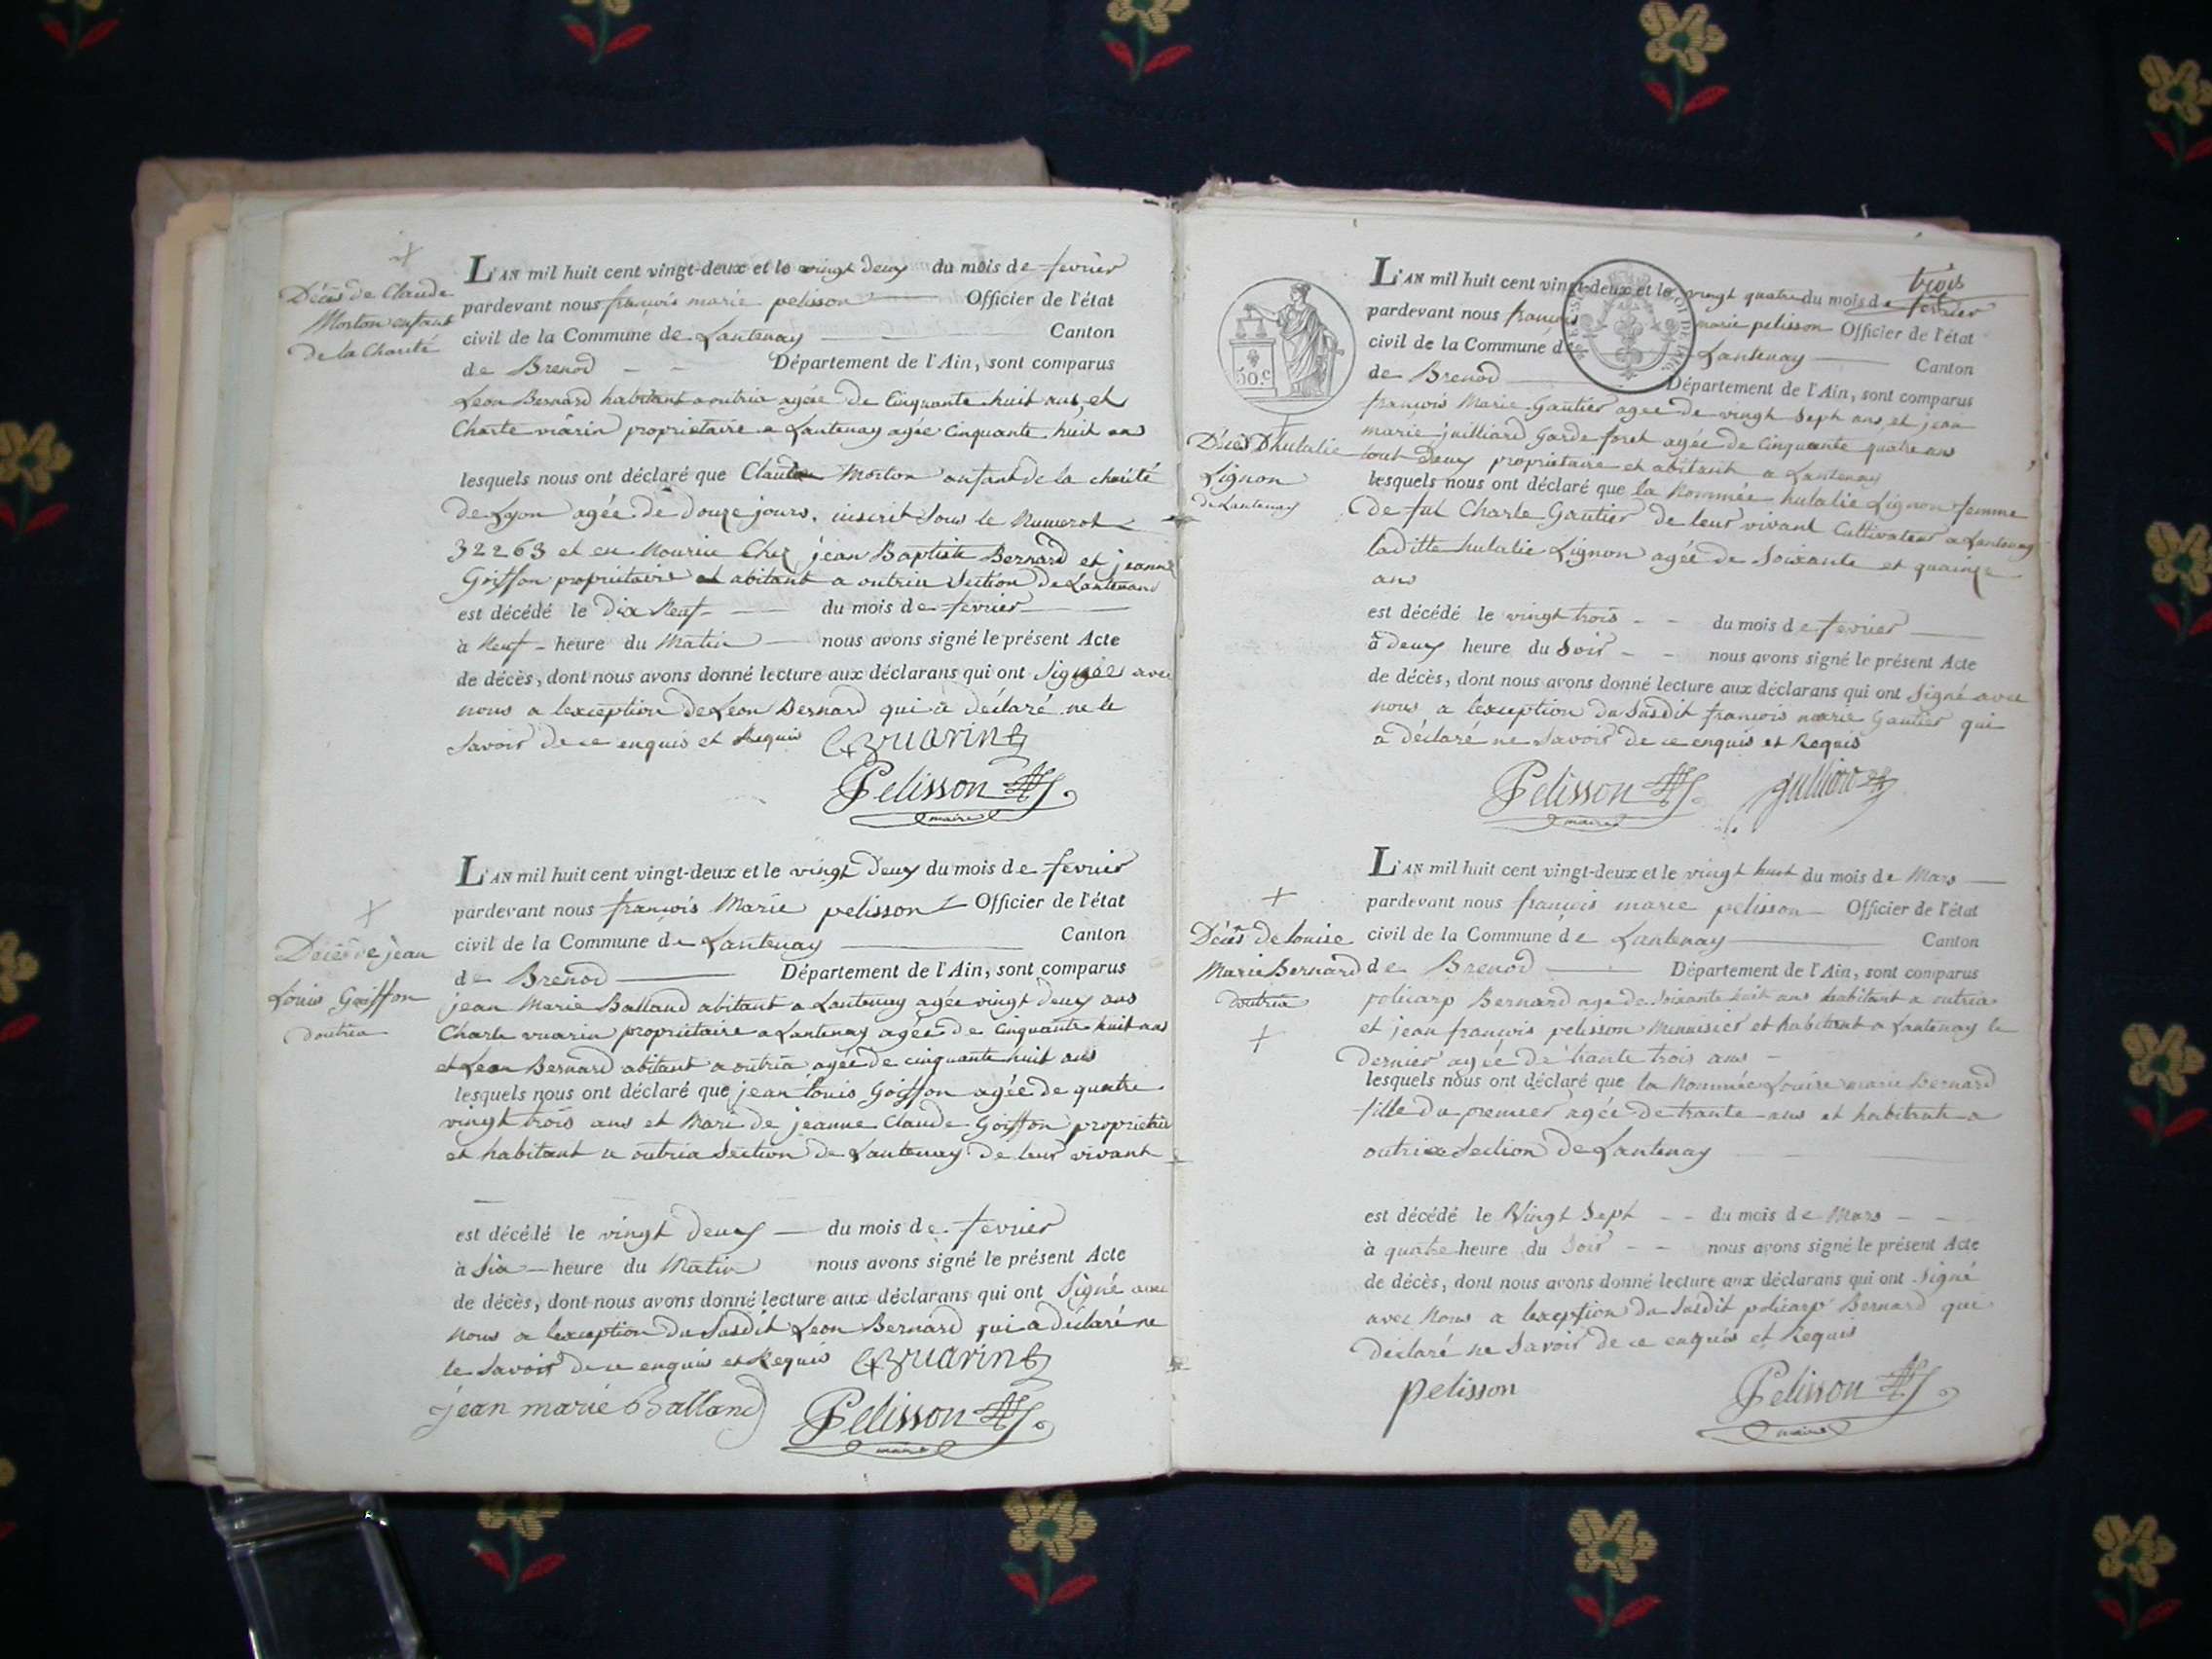 Décès de Claude
Morton enfant
de la Charité
L'AN mil huit cent vingt-deux et le vingt deux du mois de fevrier
pardevant nous françois marie pelisson Officier de l'état
civil de la Commune de Lantenay Canton
de Brenod Département de l'Ain, sont comparus
Leon Bernard habitant a outria agée de Cinquante huit ans, et
Charle vüarin proprietaire a Lantenay agée Cinquante huit ans
lesquels nous ont déclaré que Claude Morton enfant de la charité
de Lyon agée de douze jours, inscrit sous le Numerot
32263 et en Nourice Chez jean Baptiste Bernard et jeanne
Goiffon proprietaire et abitant a outria Section de Lantenay
est décédé le dix Neuf du mois de fevrier
à Neuf heure du Matin nous avons signé le présent Acte
de décès, dont nous avons donné lecture aux déclarans qui ont Signés avec
nous a lexception de Leon Bernard qui a déclaré ne le
Savoir de ce enquis et Requis C vuarin
Pelisson
maire
Décès de jean
Louis Goiffon
doutria
L'AN mil huit cent vingt-deux et le vingt deux du mois de fevrier
pardevant nous françois Marie pelisson Officier de l'état
civil de la Commune de Lantenay Canton
de Brenod Département de l'Ain, sont comparus
jean Marie Balland abitant a Lantenay agée vingt deux ans
Charle vuarin proprietaire a Lantenay agée de Cinquante huit ans
et Leon Bernard abitant a outria agée de cinquante huit ans
lesquels nous ont déclaré que jean Louis Goiffon agée de quatre
vingt trois ans et Mari de jeanne Claude Goiffon proprietaire
et habitant a outria Section de Lantenay de leur vivant
est décédé le vingt deux du mois de fevrier
à Six heure du Matin nous avons signé le présent Acte
de décès, dont nous avons donné lecture aux déclarans qui ont Signé avec
nous a lexception du Susdit Leon Bernard qui a déclaré ne
le Savoir de ce enquis et Requis C vuarin
jean marie Balland Pelisson
maire
trois
50.c
Décès Dhulalie
Lignon
de Lantenay
L'AN mil huit cent vingt-deux et le vingt quatre du mois de fevrier
pardevant nous françois marie pelisson Officier de l'état
civil de la Commune de Lantenay Canton
de Brenod Département de l'Ain, sont comparus
françois Marie Gautier agée de vingt Sept ans, et jean
marie juilliard Garde foret agée de Cinquante quatre ans
tout deux proprietaire et abitant a Lantenay
lesquels nous ont déclaré que la Nommée hulalie Lignon femme
de fut Charle Gautier de leur vivant Cultivateur a Lantenay
laditte hulalie Lignon agée de Soixante et quainze
ans
est décédé le vingt trois du mois de fevrier
à deux heure du Soir nous avons signé le présent Acte
de décès, dont nous avons donné lecture aux déclarans qui ont Signé avec
nous a lexception du Susdit françois marie Gautier qui
a déclaré ne Savoir de ce enquis et Requis
Pelisson
maire
Décès de Louise
Marie Bernard
doutria
L'AN mil huit cent vingt-deux et le vingt huit du mois de Mars
pardevant nous françois marie pelisson Officier de l'état
civil de la Commune de Lantenay Canton
de Brenod Département de l'Ain, sont comparus
policarp Bernard age de Soixante huit ans habitant a outria
et jean françois pelisson Menuisier et habitant a Lantenay le
dernier agée de trante trois ans
lesquels nous ont déclaré que la Nommée Louise marie Bernard
fille du premier agée de trante ans et habitant a
outria Section de Lantenay
est décédé le Vingt Sept du mois de Mars
à quatre heure du Soir nous avons signé le présent Acte
de décès, dont nous avons donné lecture aux déclarans qui ont Signé
avec Nous a lexception du Susdit policarp Bernard qui
déclaré ne Savoir de ce enquis et Requis
pelisson Pelisson
maire